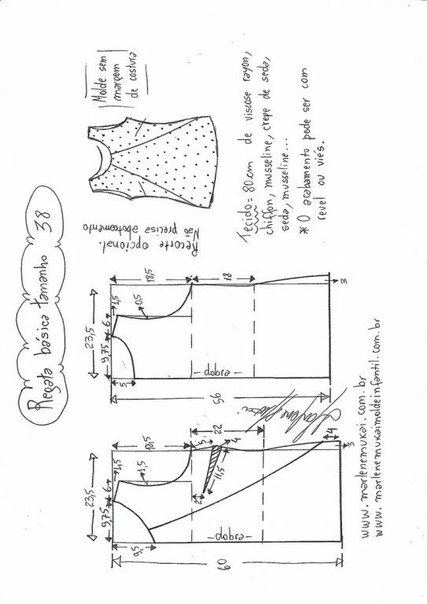 Regata básica tamanho 38
Molde sem
margem
de costura
Recorte opcional.
Não precisa abotoamento
Tecido = 80cm de viscose rayon,
chiffon, musseline, crepe de seda,
seda, musseline...
* O acabamento pode ser com
revel ou viés.
23,5
9,75
6
1,5
0,5
18,5
18
3
5
dobra
56
23,5
9,75
6
1,5
1,5
18,5
5
4
22
11,5
2
4
3
9,5
dobra
60
www.marlenemukai.com.br
www.marlenemukaimoldeinfantil.com.br